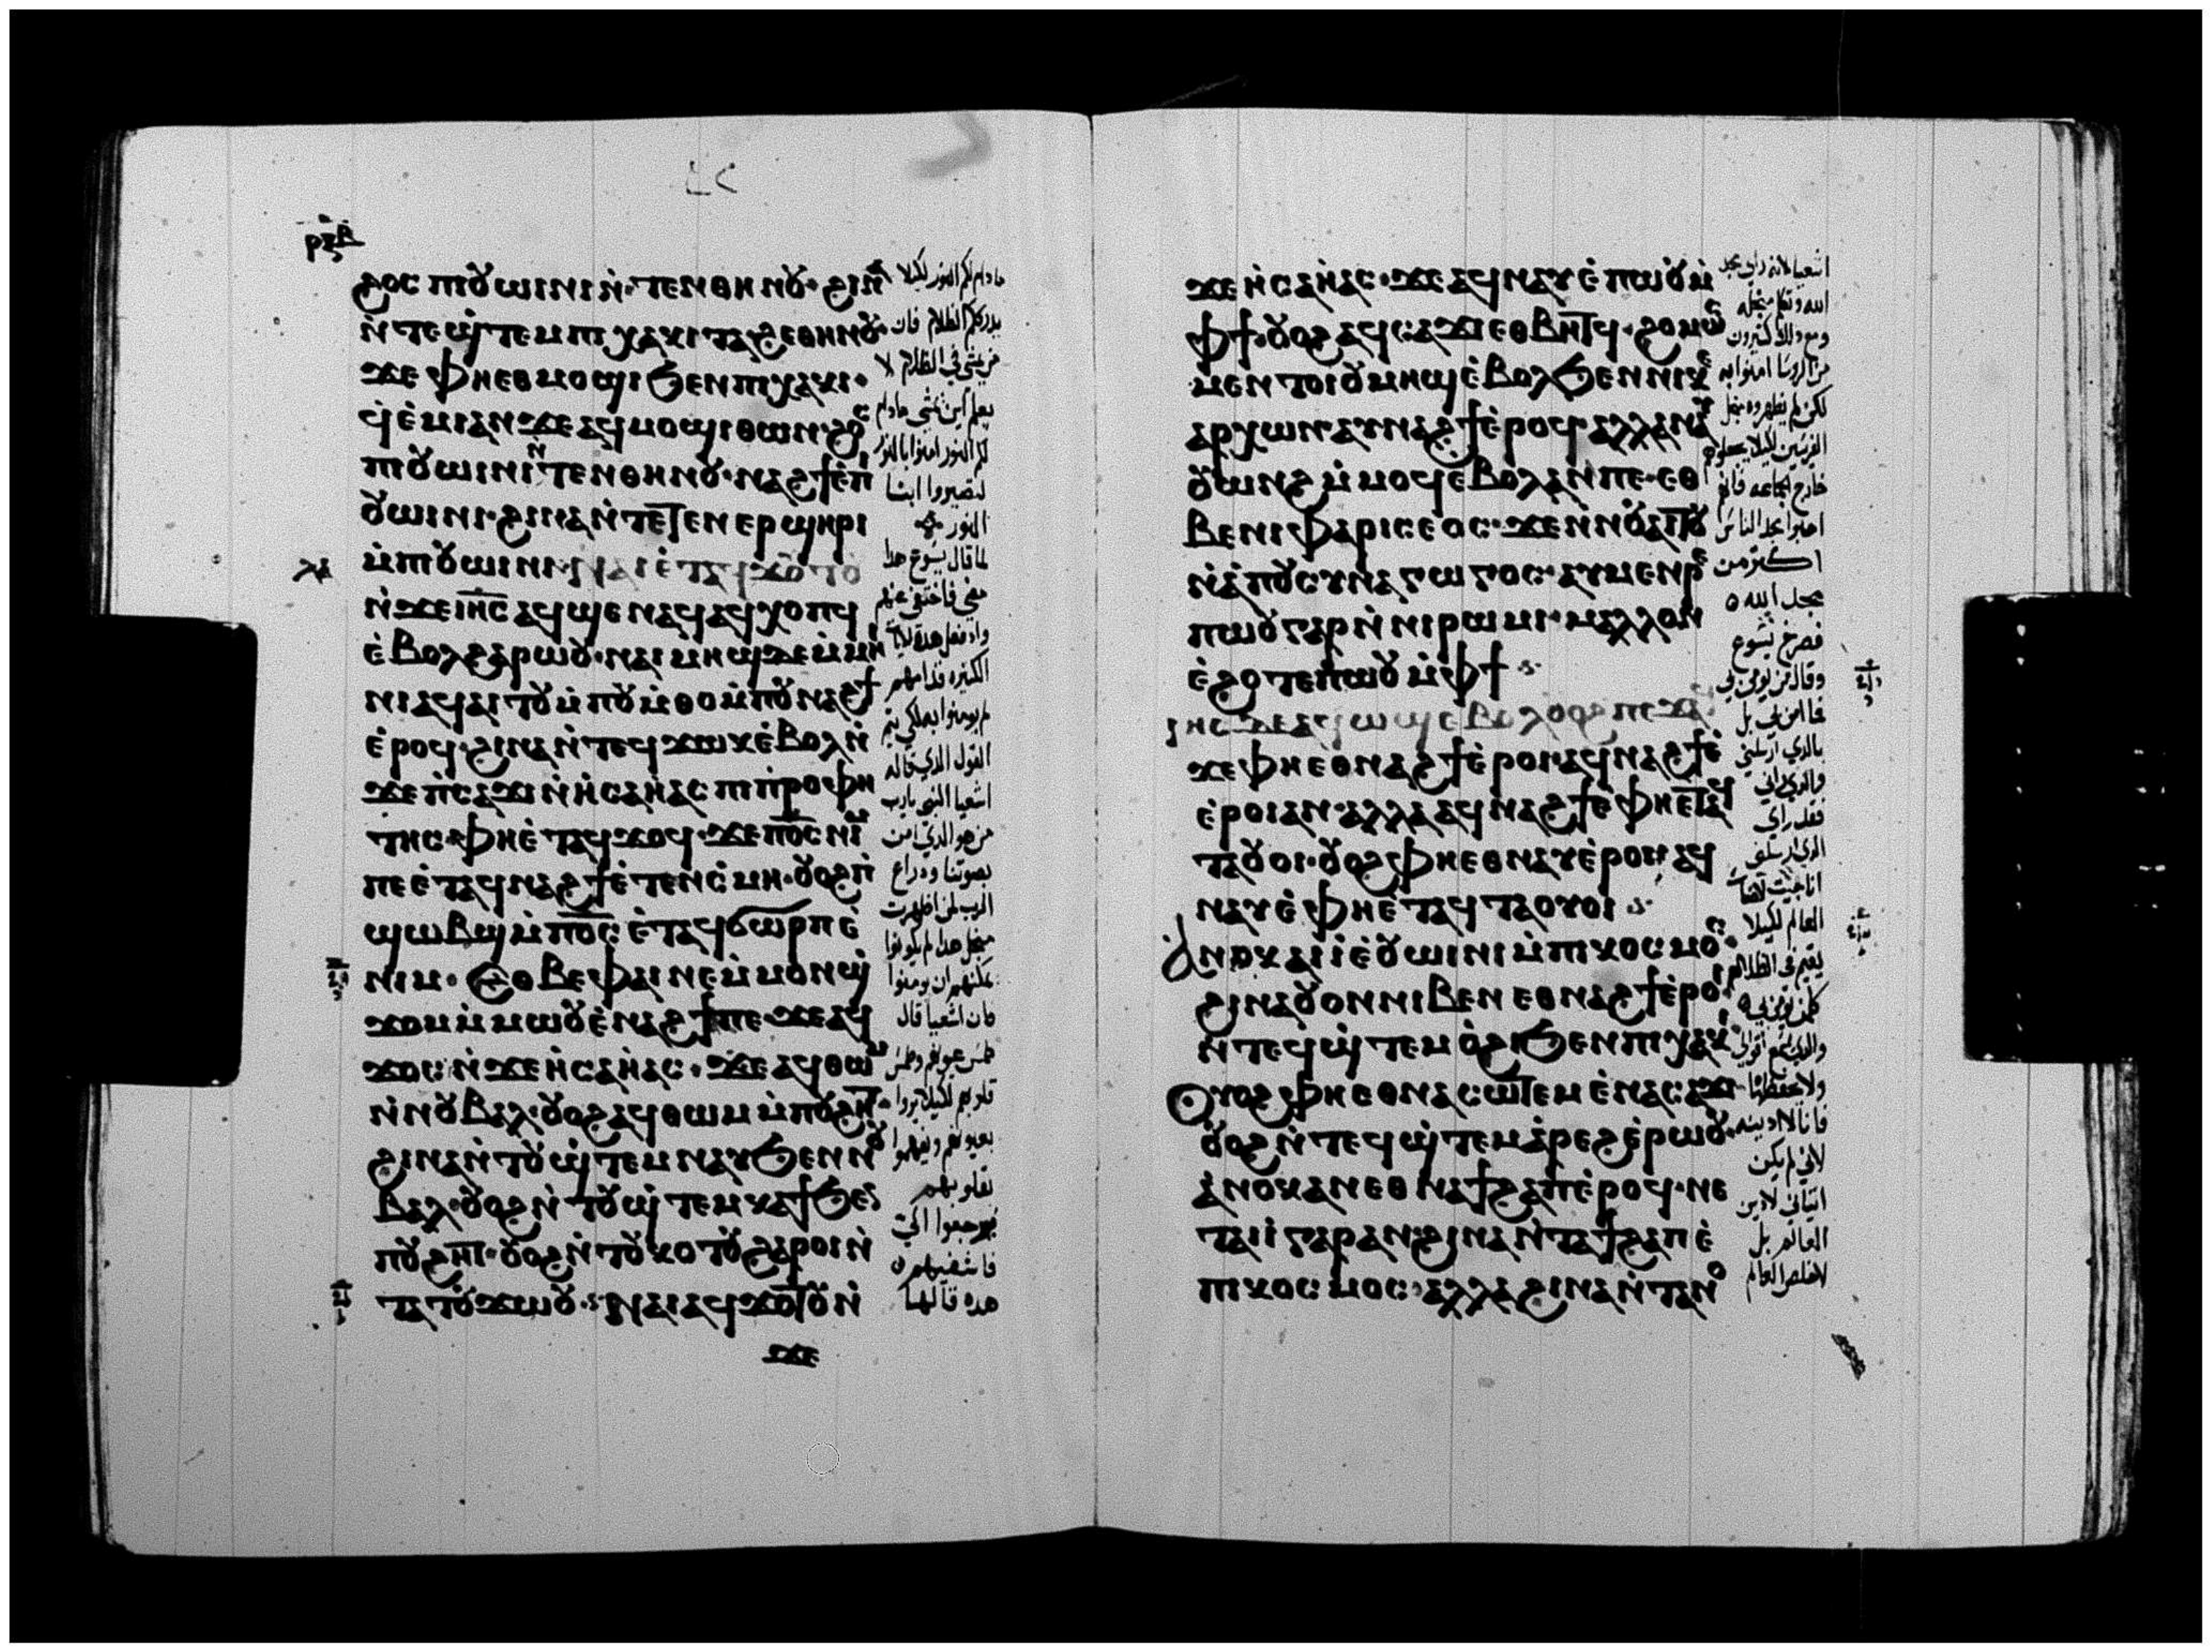 ⲣⲝⲃ
ϩⲟⲥ ⲡⲓⲟⲩⲱⲓⲛⲓ ⲛ̀ⲧⲉⲛⲑⲏⲛⲟⲩ· ϩⲓⲛⲁ
ⲛ̀ⲧⲉϣ̀ⲧⲉⲙ ⲡⲓⲭⲁⲕⲓ ⲧⲁϩⲉ ⲑⲏⲛⲟⲩ·
ϫⲉ ⲫⲏⲉⲑⲙⲟϣⲓ ϧⲉⲛ ⲡⲓⲭⲁⲕⲓ·
ϥ̀ⲉⲙⲓ ⲁⲛ ϫⲉ ⲁϥⲙⲟϣⲓ ⲑⲱⲛ· ϩⲟⲥ
ⲡⲓⲟⲩⲱⲓⲛⲓ ⲛⲧⲉⲛⲑⲏⲛⲟⲩ· ⲛⲁϩϯ ⲉ̀ⲡⲓ
ⲟⲩⲱⲓⲛⲓ· ϩⲓⲛⲁ ⲛ̀ⲧⲉⲧⲉⲛⲉⲣϣⲏⲣⲓ
ⲙ̀ⲡⲓⲟⲩⲱⲓⲛⲓ· ⲛⲁⲓ ⲉ̀ⲧⲁϥϫⲟⲧⲟⲩ
ⲛ̀ϫⲉ ⲓⲏ̅ⲥ̅ ⲁϥϣⲉ ⲛⲁϥ ⲁϥⲭⲟⲡϥ
ⲉ̀ⲃⲟⲗϩⲁⲣⲱⲟⲩ· ⲛⲁⲓⲙⲏϣ ϫⲉ ⲙ̀ⲙⲏ
ⲛⲓ ⲁϥⲁⲓⲧⲟⲩ ⲙ̀ⲡⲟⲩⲙ̀ⲑⲟ ⲙ̀ⲡⲟⲩⲛⲁϩϯ
ⲉ̀ⲣⲟϥ· ϩⲓⲛⲁ ⲛ̀ⲧⲉϥϫⲱⲕ ⲉ̀ⲃⲟⲗ ⲛ̀
ϫⲉ ⲡ̀ⲥⲁϫⲓ ⲛ̀ⲏ̀ⲥⲁⲏ̀ⲁⲥ ⲡⲓⲡ̀ⲣⲟⲫⲏ
ⲧⲏⲥ· ⲫⲏⲉ̀ⲧⲁϥϫⲟϥ· ϫⲉ ⲡⲟ̅ⲥ̅ ⲛⲓⲙ
ⲡⲉ ⲉ̀ⲧⲁϥⲛⲁϩϯ ⲉ̀ⲧⲉⲛⲥ̀ⲙⲏ· ⲟⲩⲟϩ ⲡ̀
ϣⲱⲃϣ ⲙ̀ⲡⲟ̅ⲥ̅ ⲉ̀ⲧⲁϥϭⲱⲣⲡ ⲉ̀
ⲛⲓⲙ· ⲉⲑⲃⲉ ⲫⲁⲓ ⲛⲉ ⲙ̀ⲙⲟⲛ ϣ̀
ϫⲟⲙ ⲙ̀ⲙⲱⲟⲩ ⲉ̀ⲛⲁϩϯ ⲡⲉ· ϫⲉ ⲁϥ
ϫⲟⲥ ⲛ̀ϫⲉ ⲏ̀ⲥⲁⲏ̀ⲁⲥ· ϫⲉ ⲁϥⲑⲱⲙ
ⲛ̀ⲛⲟⲩⲃⲁⲗ· ⲟⲩⲟϩ ⲁϥⲑⲱⲙ ⲙ̀ⲡⲟⲩϩⲏⲧ·
ϩⲓⲛⲁ ⲛ̀ⲧⲟⲩϣ̀ⲧⲉⲙⲛⲁⲩ ϧⲉⲛ ⲛⲟⲩ
ⲃⲁⲗ· ⲟⲩⲟϩ ⲛ̀ⲧⲟⲩϣ̀ⲧⲉⲙⲕⲁϯ ϧⲉⲛ
ⲡⲟⲩϩⲏⲧ· ⲟⲩⲟϩ ⲛ̀ⲧⲟⲩⲕⲟⲧⲟⲩ ϩⲁⲣⲟⲓ ⲛ̀
ⲧⲁⲧⲟⲩϫⲱⲟⲩ· ⲛⲁⲓ ⲁϥϫⲟⲧⲟⲩ ⲛ̀
ϫⲉ
مادام لكم النور لكيلا
يدرككم الظلام فان
من يمشي في الظلام لا
يعلم اين يمشي مادام
لكم النور امنوا بالنور
لتصيروا ابنا
النور
لما قال يسوع هدا
مضي فاختفي عنهم
الكثيره قدامهم
لم يومنوا به لكي يتم
القول الدي قاله
اشعيا النبي يارب
من هو الدي امن
بصوتنا ودراع
الرب لمن اظهرت
يمكنهم ان يومنوا
لان اشعيا قال
طمس عيونهم وطمس
قلوبهم لكيلا يروا
بعيونهم ويفهموا
بقلوبهم
ويرجعوا الي
فاشفيهم
هده قالها
ϫⲉ ⲏ̀ⲥⲁⲏ̀ⲁⲥ· ϫⲉ ⲁϥⲛⲁⲩ ⲉ̀ⲡⲱⲟⲩ ⲙ̀
ⲫϯ· ⲟⲩⲟϩ ⲁϥⲥⲁϫⲓ ⲉⲑⲃⲏⲧϥ· ϩⲟⲙⲱⲥ
ⲙⲉⲛⲧⲟⲓ ⲟⲩⲙⲏϣ ⲉ̀ⲃⲟⲗϧⲉⲛ ⲛⲓⲕⲉ
ⲁⲣⲭⲱⲛ· ⲁⲩⲛⲁϩϯ ⲉ̀ⲣⲟϥ· ⲁⲗⲗⲁ ⲛⲁⲩ
ⲟⲩⲱⲛϩ ⲙ̀ⲙⲟϥ ⲉ̀ⲃⲟⲗ ⲁⲛ ⲡⲉ· ⲉⲑ
ⲃⲉ ⲛⲓⲫⲁⲣⲓⲥⲉⲟⲥ· ϫⲉ ⲛ̀ⲛⲟⲩⲁⲓⲧⲟⲩ
ⲛ̀ⲁⲡⲟⲥⲩⲛⲁⲅⲱⲅⲟⲥ· ⲁⲩⲙⲉⲛⲣⲉ
ⲡⲱⲟⲩ ⲅⲁⲣ ⲛ̀ⲛⲓⲣⲱⲙⲓ· ⲙⲁⲗⲗⲟⲛ
ⲉ̀ϩⲟⲧⲉ ⲡⲱⲟⲩ ⲙ̀ⲫϯ
ⲓⲏⲥ ϫⲉ ⲁϥⲱϣ ⲉ̀ⲃⲟⲗ ⲟⲩⲟϩ ⲡⲉϫⲁϥ
ϫⲉ ⲫⲏⲉⲑⲛⲁϩϯ ⲉ̀ⲣⲟⲓ ⲁϥⲛⲁϩϯ ⲉ̀
ⲉ̀ⲣⲟⲓ ⲁⲛ· ⲁⲗⲗⲁ ⲁϥⲛⲁϩϯ ⲉ̀ⲫⲏⲉⲧⲁϥ
ⲧⲁⲟⲩⲟⲓ· ⲟⲩⲟϩ ⲫⲏⲉⲑⲛⲁⲩ ⲉ̀ⲣⲟⲓ ⲁϥ
ⲛⲁⲩ ⲉ̀ⲫⲏⲉ̀ⲧⲁϥⲧⲁⲟⲩⲟⲓ
ⲁⲛⲟⲕ ⲁⲓⲓ̀ ⲉ̀ⲟⲩⲱⲓⲛⲓ ⲙ̀ⲡⲓⲕⲟⲥⲙⲟⲥ·
ϩⲓⲛⲁ ⲟⲩⲟⲛ ⲛⲓⲃⲉⲛ ⲉⲑⲛⲁϩϯ ⲉ̀ⲣⲟⲓ
ⲛ̀ⲧⲉϥϣ̀ⲧⲉⲙⲟ̀ϩⲓ ϧⲉⲛ ⲡⲓⲭⲁⲕⲓ·
ⲟⲩⲟϩ ⲫⲏⲉⲑⲛⲁⲥⲱⲧⲉⲙ ⲉ̀ⲛⲁⲥⲁϫⲓ
ⲟⲩⲟϩ ⲛ̀ⲧⲉϥϣ̀ⲧⲉⲙⲁ̀ⲣⲉϩ ⲉ̀ⲣⲱⲟⲩ·
ⲁ̀ⲛⲟⲕ ⲁⲛ ⲉⲑⲛⲁϯϩⲁⲡ ⲉ̀ⲣⲟϥ· ⲛⲉ
ⲧⲁⲓⲓ̀ ⲅⲁⲣ ⲁⲛ ϩⲓⲛⲁ ⲛ̀ⲧⲁϯϩⲁⲡ ⲉ̀
ⲡⲓⲕⲟⲥⲙⲟⲥ· ⲁⲗⲗⲁ ϩⲓⲛⲁ ⲛ̀ⲧⲁⲛⲟ
اشعيا لانه راي مجد
الله وتكلم من اجله
ومع دلك كثيرون
من الروسا امنوا به
لكن لم يظهروه من اجل
خارج الجماعه فانهم
احبوا مجد الناس
اكثر من
مجد الله
فصرخ يسوع
وقال من يومن بي
فما امن بي بل
بالدي ارسلني
والدي راني
فقد راي
الدي ارسلني
العالم لكيلا
يقيم في الظلام
كلمن يومن بي
ولا يحفظها
فانا لا ادينه
لاني لم يكن
اتياني لادين
العالم بل
لاخلص العالم